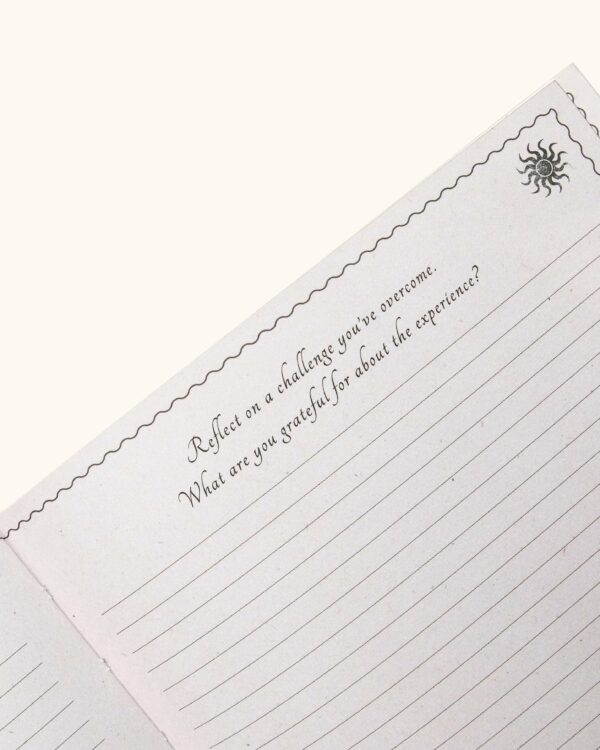 Reflect on a challenge you've overcome.
What are you grateful for about the experience?